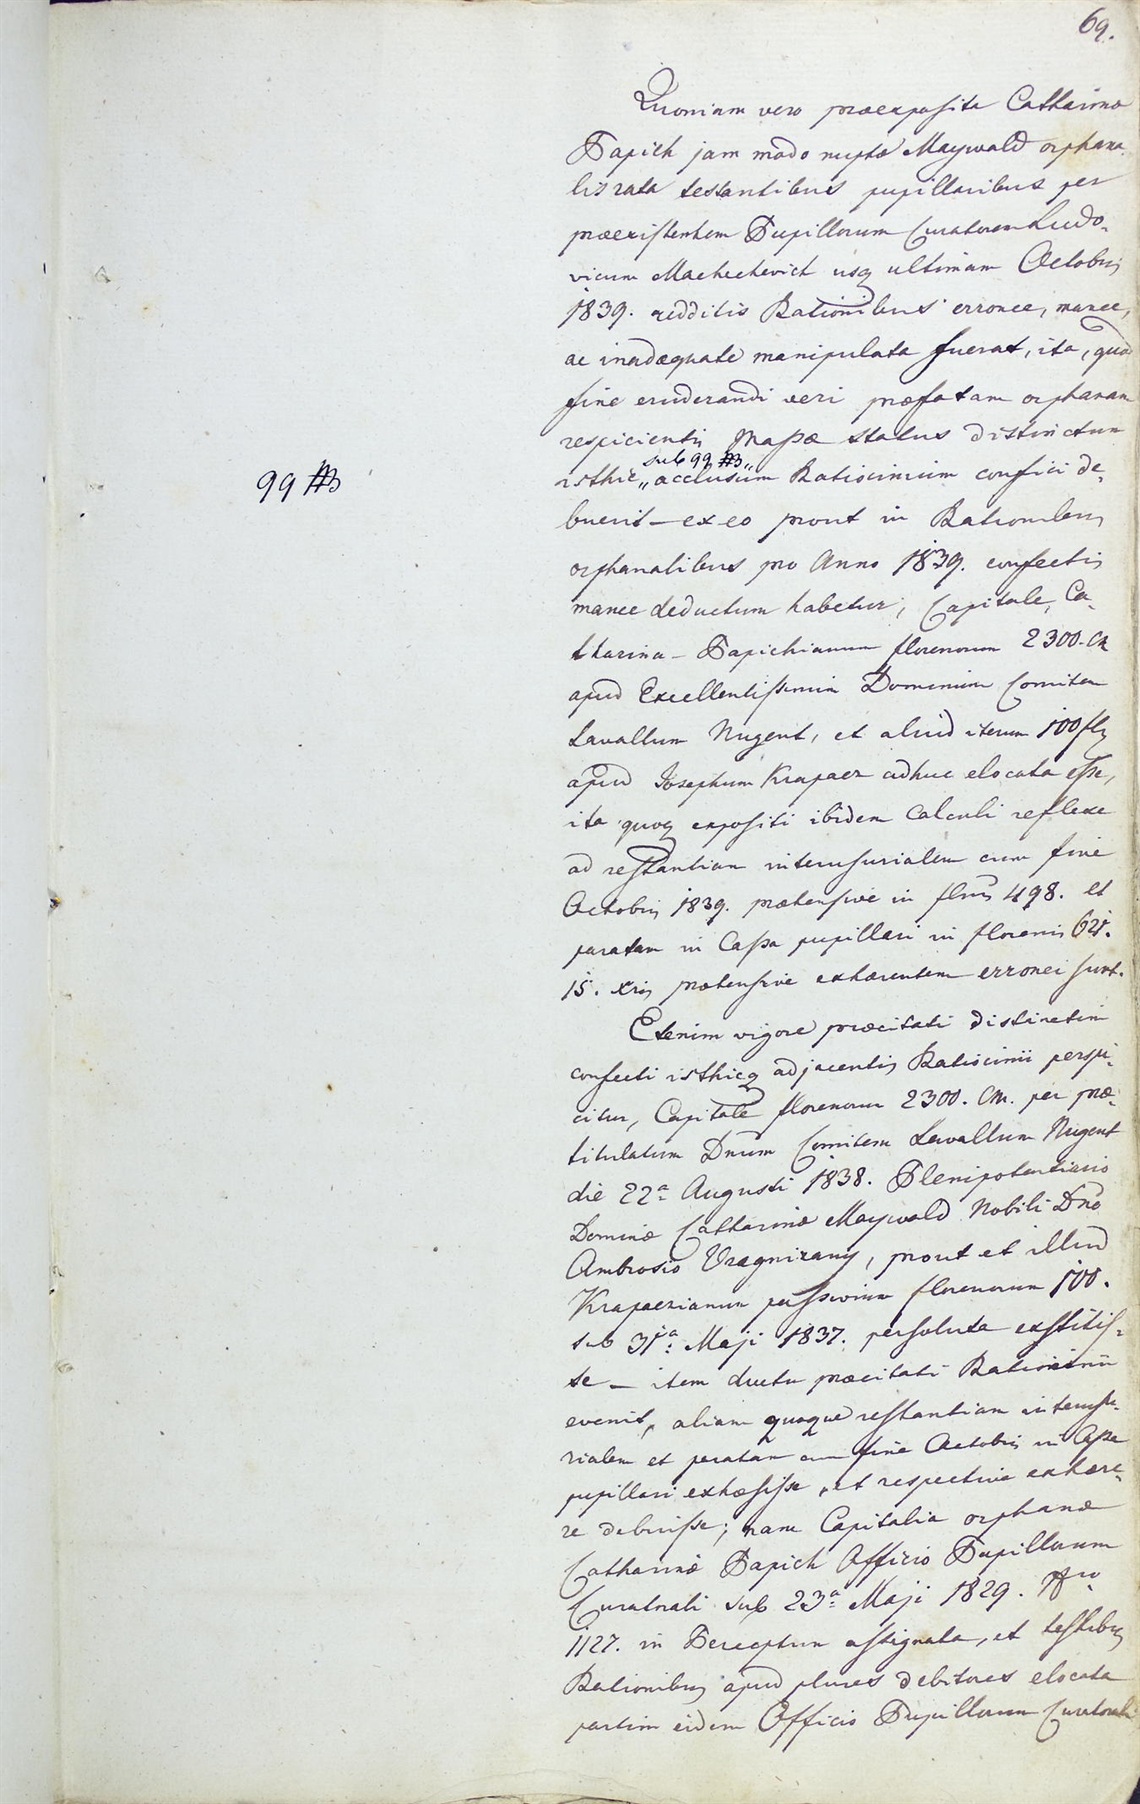 69.
Quoniam vero præexposita Catharinæ
Papich jam modo nuptæ Maywald orphana
lis rata testantibus pupillaribus per
præexistentem Pupillorum Curatorem Ludo-
vicum Machechevich usq ultimam Octobris
1839. redditis Rationibus erronee, mance,
ac inadæquate manipulata fuerat, ita, quod
fine eruderandi veri præfatam orphanam
respicientis Massæ status distinctum
sub 99
isthic „acclusum Ratiocinium confici de-
99
buerit – ex eo prout in Rationibus
orphanalibus pro Anno 1839. confectis
mance deductum habetur, Capitale, Ca-
tharina – Papichianum florenorum 2300. CM
apud Excellentissimum Dominum Comitem
Lavallum Nugent, et aliud iterum 100 flr
apud Josephum Krapacz adhuc elocata esse,
ita quoq expositi ibidem Calculi reflexe
ad restantiam interusurialem cum fine
Octobris 1839. prætensive in flnis 498. et
paratam in Cassa pupillari in florenis 621.
15. xris prætensive exhærentem erronei sunt.
Etenim vigore præcitati distinctim
confecti isthicq adjacentis Ratiocinii perspi-
citur, Capitale florenorum 2300. CM. per præ-
titulatum Dnum Comitem Lavallum Nugent
die 22a Augusti 1838. Plenipotentiario
Dominæ Catharinæ Maywald Nobili Dno
Ambrosio Vragnizany, prout et illud
Krapaczianum passivum florenorum 100.
sub 31a Maji 1837. persoluta exstitis-
se – item ductu præcitati Ratiocinii
evenit, aliam quoque restantiam interusu-
rialem et paratam cum fine Octobris in Cassa
pupillari exhæsisse, et respective exhære-
re debuisse; nam Capitalia orphanæ
Catharinæ Papich Officio Pupillorum
Curatorali sub 23a Maji 1829. Nro
1127. in Perceptum assignata, et testibus
Rationibus apud plures debitores elocata
partim eidem Officio Pupillorum Curatorali